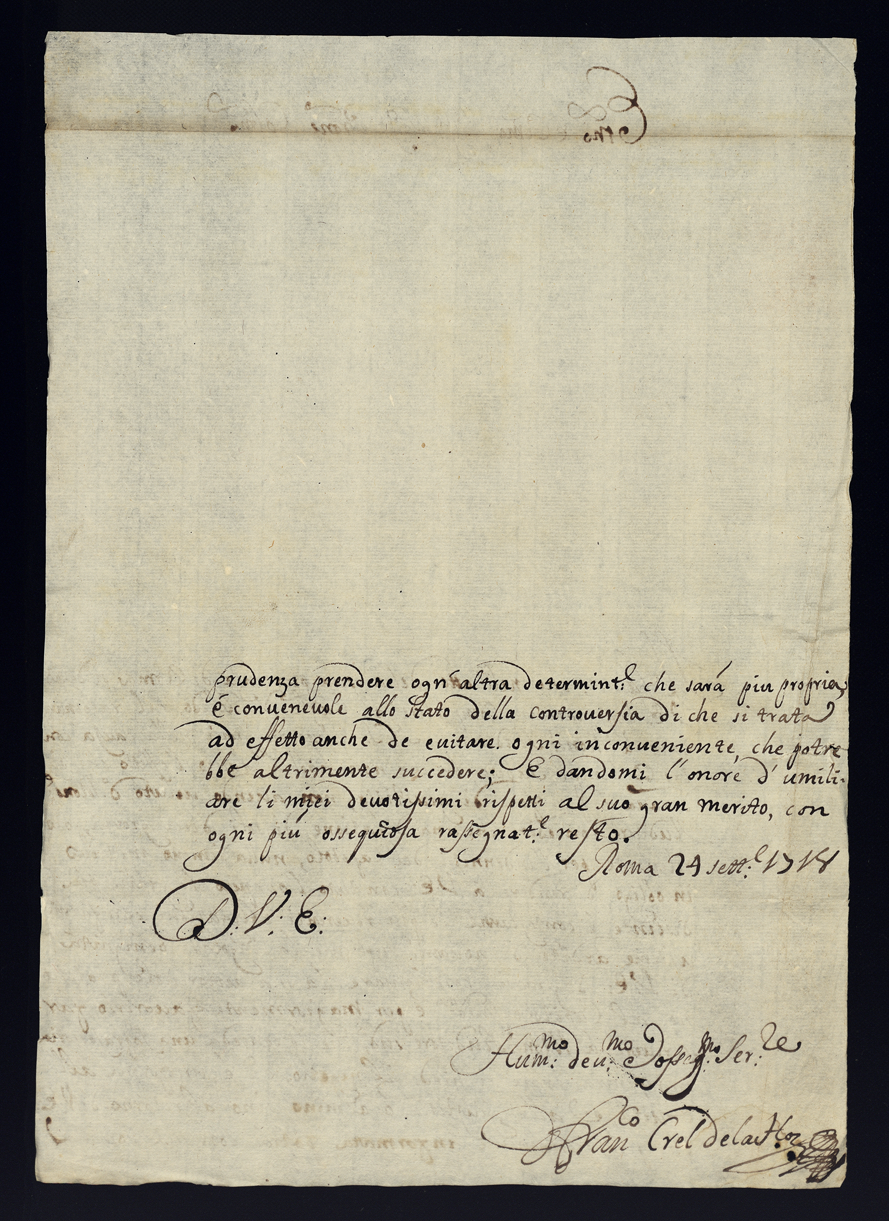 prudenza prendere ogn' altra determint.e che sará piu propria,
é convenevole allo stato della controversia di che si trata
ad effetto anche de evitare ogni inconveniente, che potre-
bbe altrimente succedere; E dandomi l'onore d'umili-
are li miei devotissimi rispetti al suo gran merito, con
ogni piu ossequiosa rassegnat.e resto.
Roma 24 sett.e 1718
D. V. E.
Hum.mo dev.mo Ser.re
Fran.co Crel de la